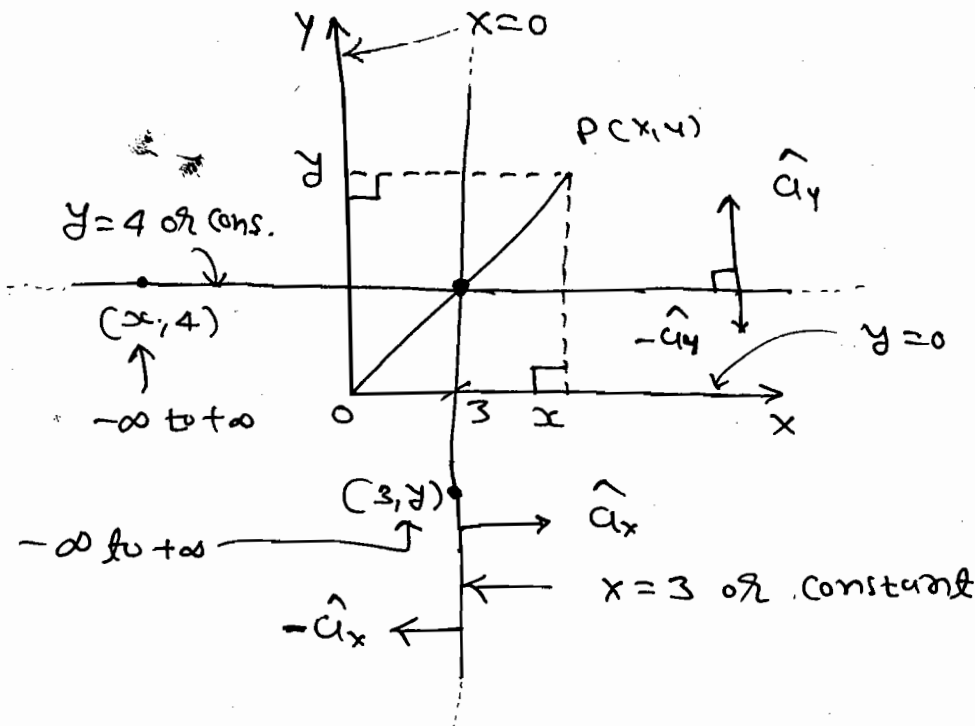 Y
x=0
P(x,y)
y
ây
y=4 or cons.
(x,4)
-ây
y=0
-∞ to +∞
0
3
x
X
(3,y)
âx
-∞ to +∞
x=3 or constant
-âx